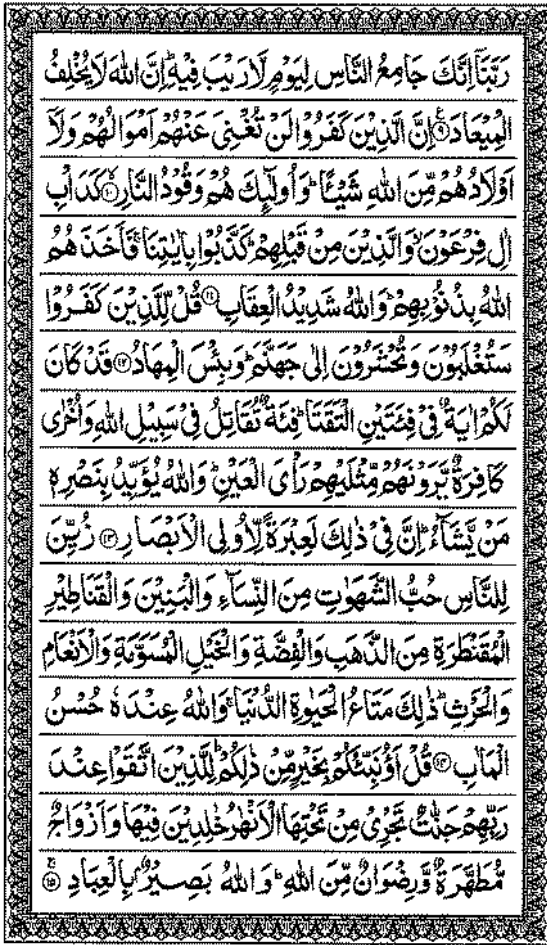 رَبَّنَاۤ اِنَّكَ جَامِعُ النَّاسِ لِیَوْمٍ لَّا رَیْبَ فِیْهِؕ اِنَّ اللّٰهَ لَا یُخْلِفُ
الْمِیْعَادَ۝۹ۧ اِنَّ الَّذِیْنَ كَفَرُوْا لَنْ تُغْنِیَ عَنْهُمْ اَمْوَالُهُمْ وَلَاۤ
اَوْلَادُهُمْ مِّنَ اللّٰهِ شَیْـًٔاؕ وَاُولٰٓىِٕكَ هُمْ وَقُوْدُ النَّارِ۝۱۰ كَدَاْبِ
اٰلِ فِرْعَوْنَۙ وَالَّذِیْنَ مِنْ قَبْلِهِمْؕ كَذَّبُوْا بِاٰیٰتِنَاۚ فَاَخَذَهُمُ
اللّٰهُ بِذُنُوْبِهِمْؕ وَاللّٰهُ شَدِیْدُ الْعِقَابِ۝۱۱ قُلْ لِّلَّذِیْنَ كَفَرُوْا
سَتُغْلَبُوْنَ وَتُحْشَرُوْنَ اِلٰی جَهَنَّمَؕ وَبِئْسَ الْمِهَادُ۝۱۲ قَدْ كَانَ
لَكُمْ اٰیَةٌ فِیْ فِئَتَیْنِ الْتَقَتَاؕ فِئَةٌ تُقَاتِلُ فِیْ سَبِیْلِ اللّٰهِ وَاُخْرٰی
كَافِرَةٌ یَّرَوْنَهُمْ مِّثْلَیْهِمْ رَاْیَ الْعَیْنِؕ وَاللّٰهُ یُؤَیِّدُ بِنَصْرِهٖ
مَنْ یَّشَآءُؕ اِنَّ فِیْ ذٰلِكَ لَعِبْرَةً لِّاُولِی الْاَبْصَارِ۝۱۳ زُیِّنَ
لِلنَّاسِ حُبُّ الشَّهَوٰتِ مِنَ النِّسَآءِ وَالْبَنِیْنَ وَالْقَنَاطِیْرِ
الْمُقَنْطَرَةِ مِنَ الذَّهَبِ وَالْفِضَّةِ وَالْخَیْلِ الْمُسَوَّمَةِ وَالْاَنْعَامِ
وَالْحَرْثِؕ ذٰلِكَ مَتَاعُ الْحَیٰوةِ الدُّنْیَاۚ وَاللّٰهُ عِنْدَهٗ حُسْنُ
الْمَاٰبِ۝۱۴ قُلْ اَؤُنَبِّئُكُمْ بِخَیْرٍ مِّنْ ذٰلِكُمْؕ لِلَّذِیْنَ اتَّقَوْا عِنْدَ
رَبِّهِمْ جَنّٰتٌ تَجْرِیْ مِنْ تَحْتِهَا الْاَنْهٰرُ خٰلِدِیْنَ فِیْهَا وَاَزْوَاجٌ
مُّطَهَّرَةٌ وَّرِضْوَانٌ مِّنَ اللّٰهِؕ وَاللّٰهُ بَصِیْرٌۢ بِالْعِبَادِ۝۱۵ۚ